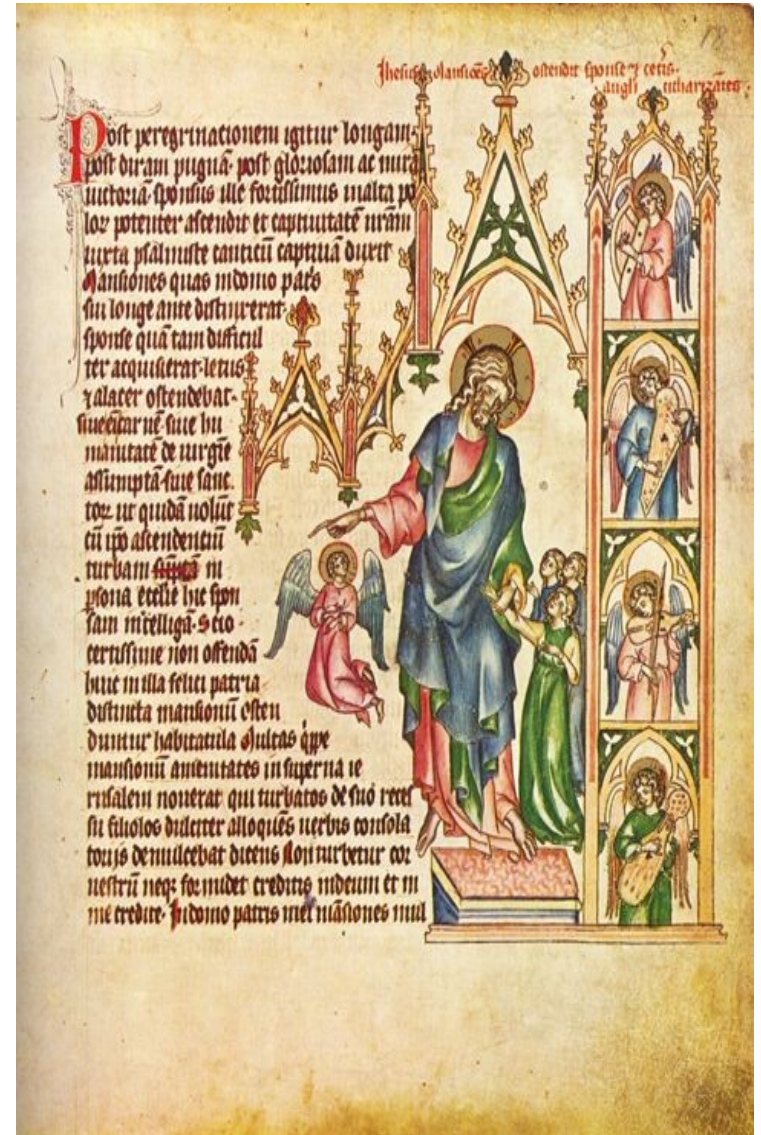 18
Jhesus mansiões ostendit sponse ⁊ cetis.
angli citharizātes
Post peregrinacionem igitur longam.
post diram pugnā. post gloriosam ac mirā
uictoriā. sponsus ille fortissimus malta po
lor potenter ascendit et captiuitatē nrām
iuxta psalmiste canticū captiuā duxit
Mansiones quas indomo patris
sui longe ante distinxerat.
sponse quā tam difficul
ter acquisierat. letus
⁊ alacer ostendebat.
siue eīt carnē siue hu
manitatē de uirgīe
assumptā. siue sanc
torꝝ ut quidā uolūt
cū ipo ascendentiū
turbam in
psona ecclie hic spon
sam intelligā. Scio
certissime non offendā
huic in illa felici patria
distincta mansionū osten
duntur habitacula Multas q̇ppe
mansionū amenitates in superna ie
rusalem nouerat qui turbatos de suo reces
su filiolos dulciter alloquēs uerbis consola
torijs demulcebat dicens Non turbetur cor
uestrū neqꝫ formidet creditis indeum et in
me credite. In domo patris mei māsiones mul